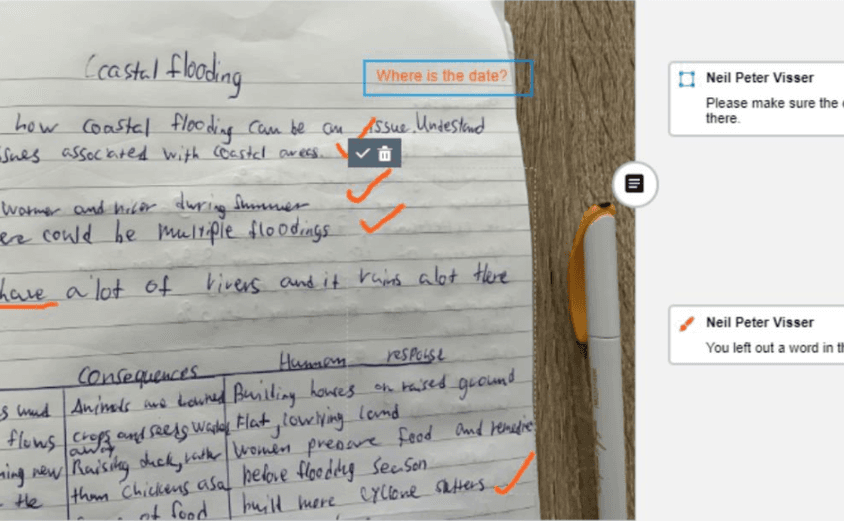 Coastal flooding
Where is the date?
how coastal flooding can be an issue. Undestand
ssues associated with coastal areas.
warmer and nicer during summer
ere could be multiple floodings
have a lot of rivers and it rains alot there
Consequences
Human response
s mud
flows
ning new
the
Animals are
crops and seeds washed
away
Raising duck, rather
than chickens as a
of food
Building houses on raised ground
Flat, lowlying land
women prepare food and remedie
before flooding season
build more cyclone
Neil Peter Visser
Please make sure the
there.
Neil Peter Visser
You left out a word in th